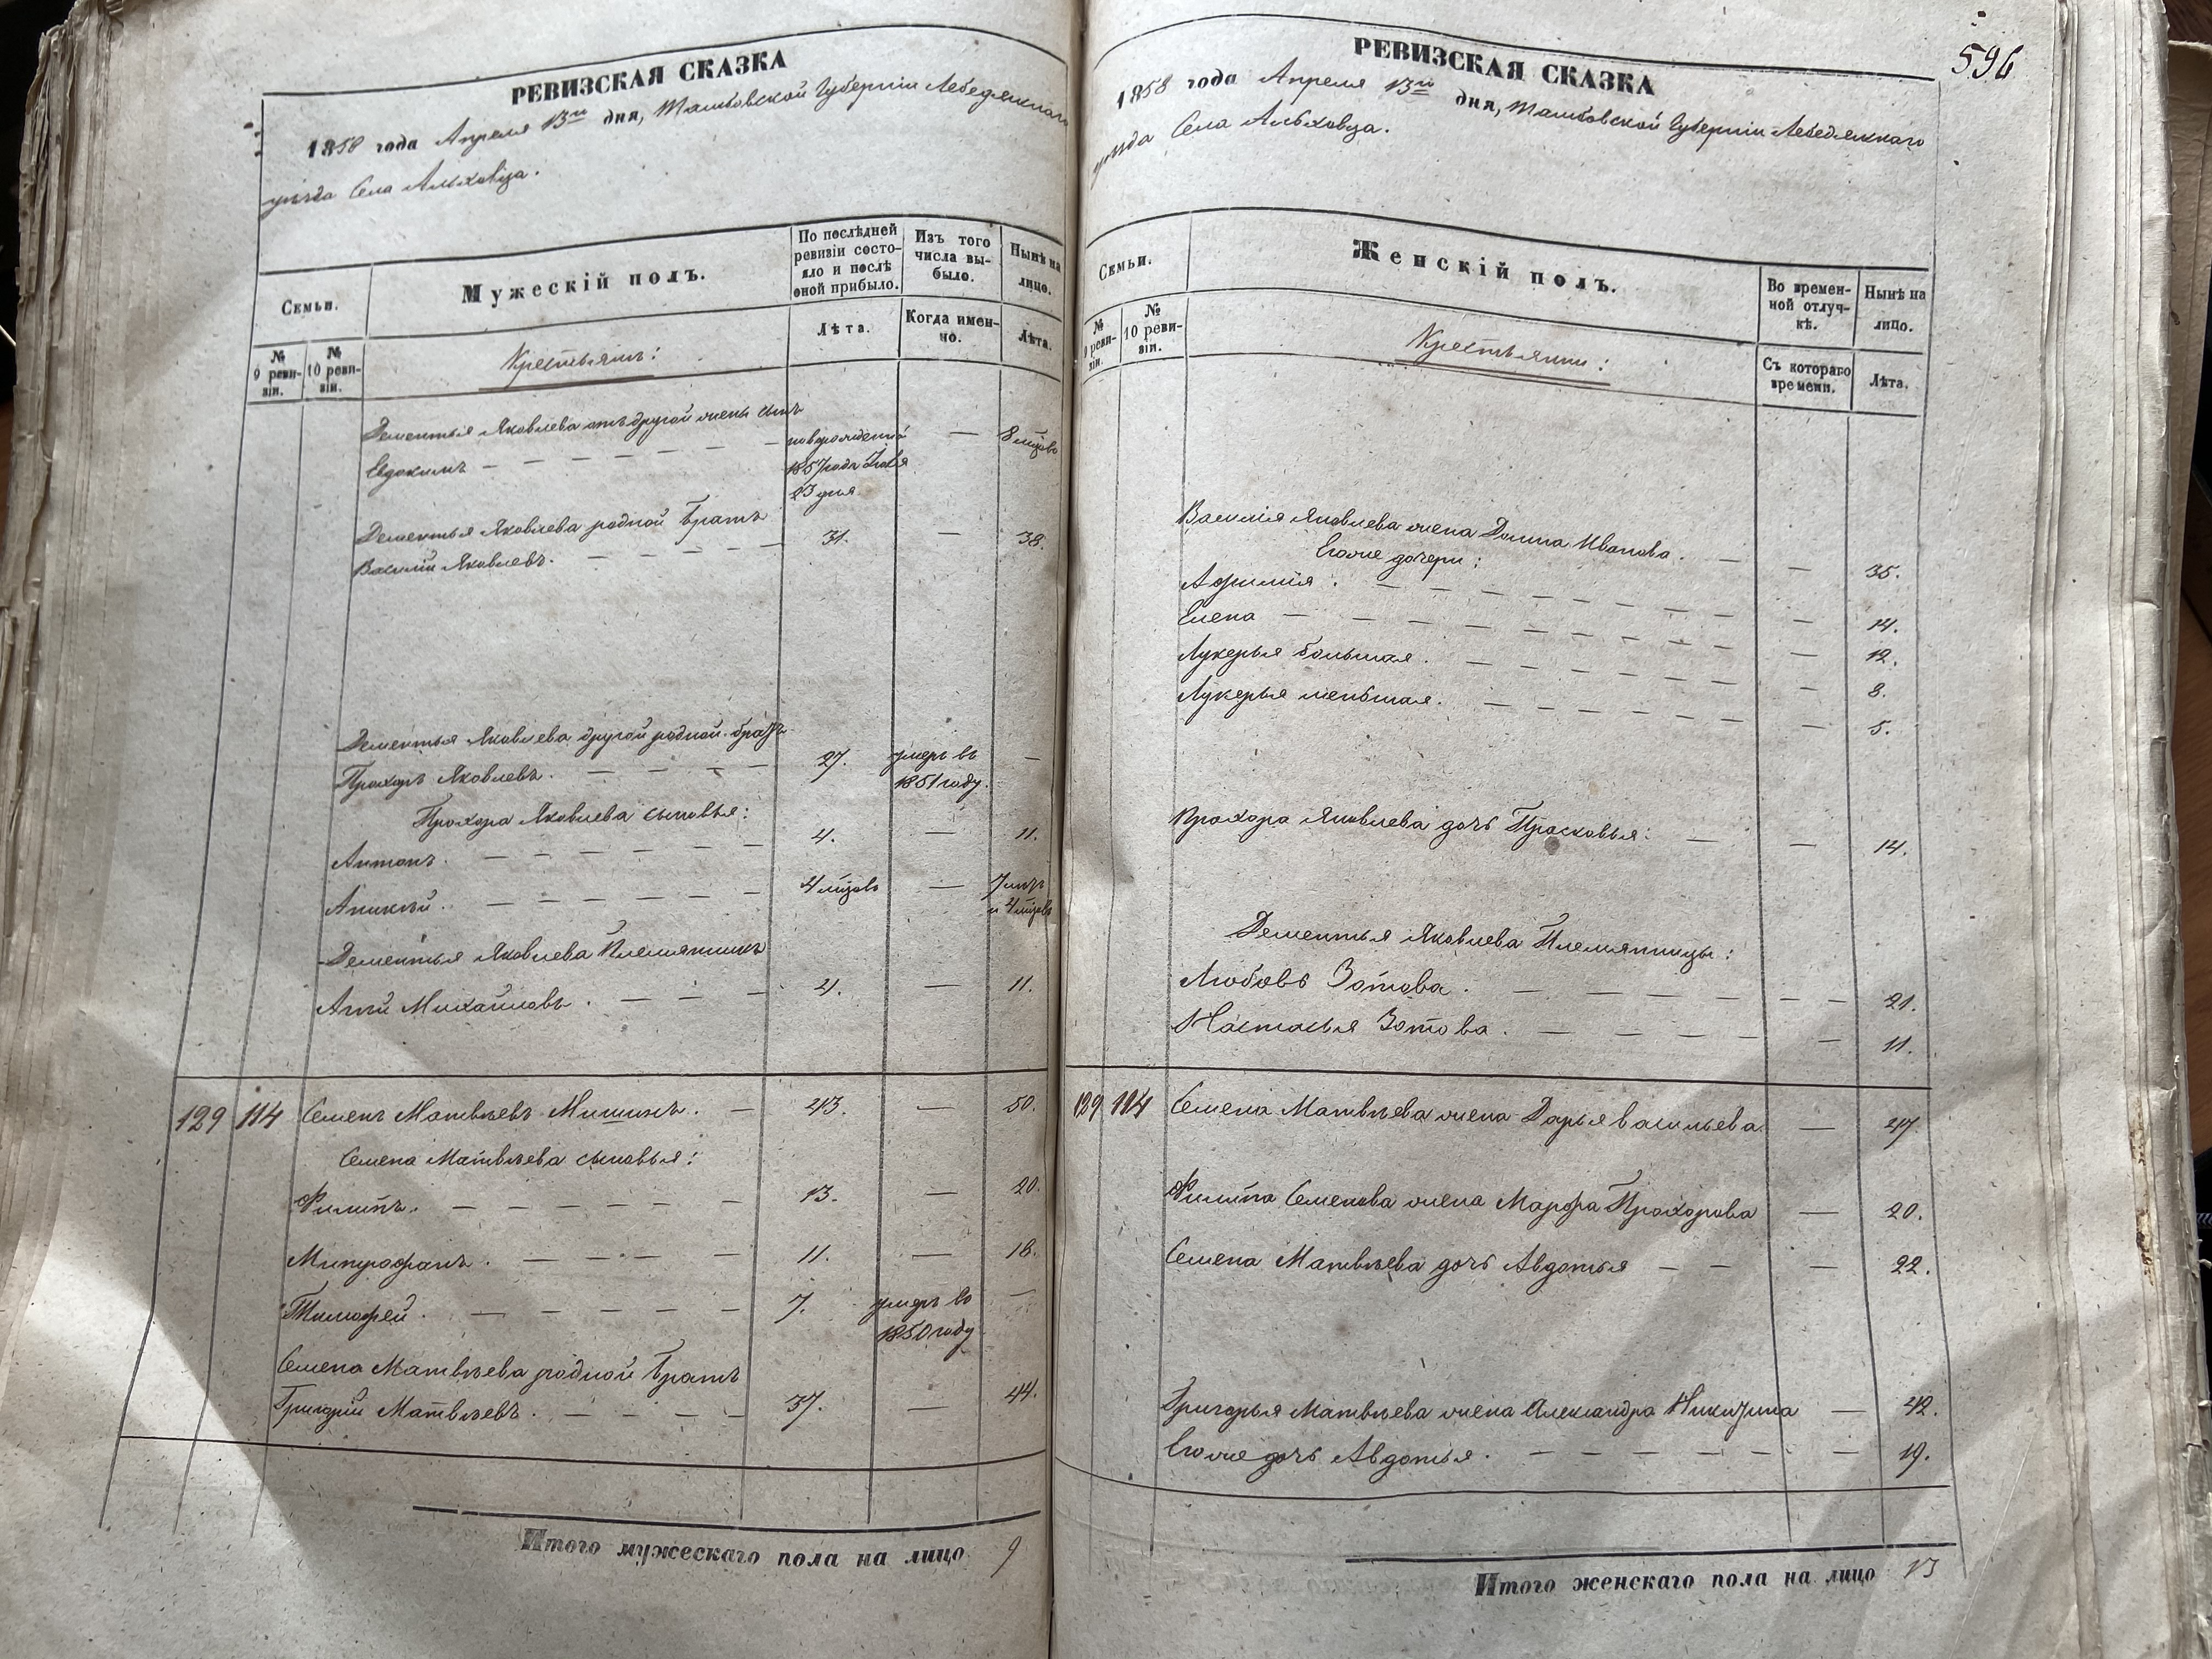 РЕВИЗСКАЯ СКАЗКА
1858 года Апреля 13го дня, Тамбовской Губерніи Лебедянскаго
уѣзда Села Альховца.
Семьи.
Мужескій полъ.
По послѣдней ревизіи состояло и послѣ оной прибыло.
Изъ того числа выбыло.
Нынѣ на лицо.
№ 9 ревизіи.
№ 10 ревизіи.
Лѣта.
Когда именно.
Лѣта.
Крестьянъ:
Дементья Яковлева отъ другой жены сынъ
Евдокимъ — новорожденный 1857 года — 8 мцовъ
23 дня
Дементья Яковлева родной братъ
Василій Яковлевъ. 31. — 38.
Дементья Яковлева другой родной братъ
Прохоръ Яковлевъ. 27. умеръ въ 1851 году. —
Прохора Яковлева сыновья:
Антонъ. 4. — 11.
Аникѣй. 4 мцовъ — 7 лѣтъ и 4 мцовъ
Дементья Яковлева Племянникъ
Михайловъ. 4. — 11.
129 114 Семенъ Матвѣевъ Мишинъ. — 43. — 50.
Семена Матвѣева сыновья:
Филипъ. 13. — 20.
Митрофанъ. 11. — 18.
Тимофей. 7. умеръ въ 1850 году —
Семена Матвѣева родной братъ
Григорій Матвѣевъ. 37. — 44.
Итого мужескаго пола на лицо 9
596
РЕВИЗСКАЯ СКАЗКА
1858 года Апреля 13го дня, Тамбовской Губерніи Лебедянскаго
уѣзда Села Альховца.
Семьи.
Женскій полъ.
Во временной отлучкѣ.
Нынѣ на лицо.
№ 9 ревизіи.
№ 10 ревизіи.
Съ котораго времени.
Лѣта.
Крестьянки:
Василія Яковлева жена Домна Иванова. — — 35.
Егоже дочери:
Афимія. — 14.
Елена — 12.
Лукерья большая. — 8.
Лукерья меньшая. — 5.
Прохора Яковлева дочь Прасковья: — — 14.
Дементья Яковлева Племянницы:
Любовь Зотова. — 21.
Настасья Зотова. — 11.
129 114 Семена Матвѣева жена Дарья Васильева — 47.
Филипа Семенова жена Марфа Прохорова — 20.
Семена Матвѣева дочь Авдотья — 22.
Григорья Матвѣева жена Александра Никитина — 42.
Егоже дочь Авдотья. — 19.
Итого женскаго пола на лицо 13